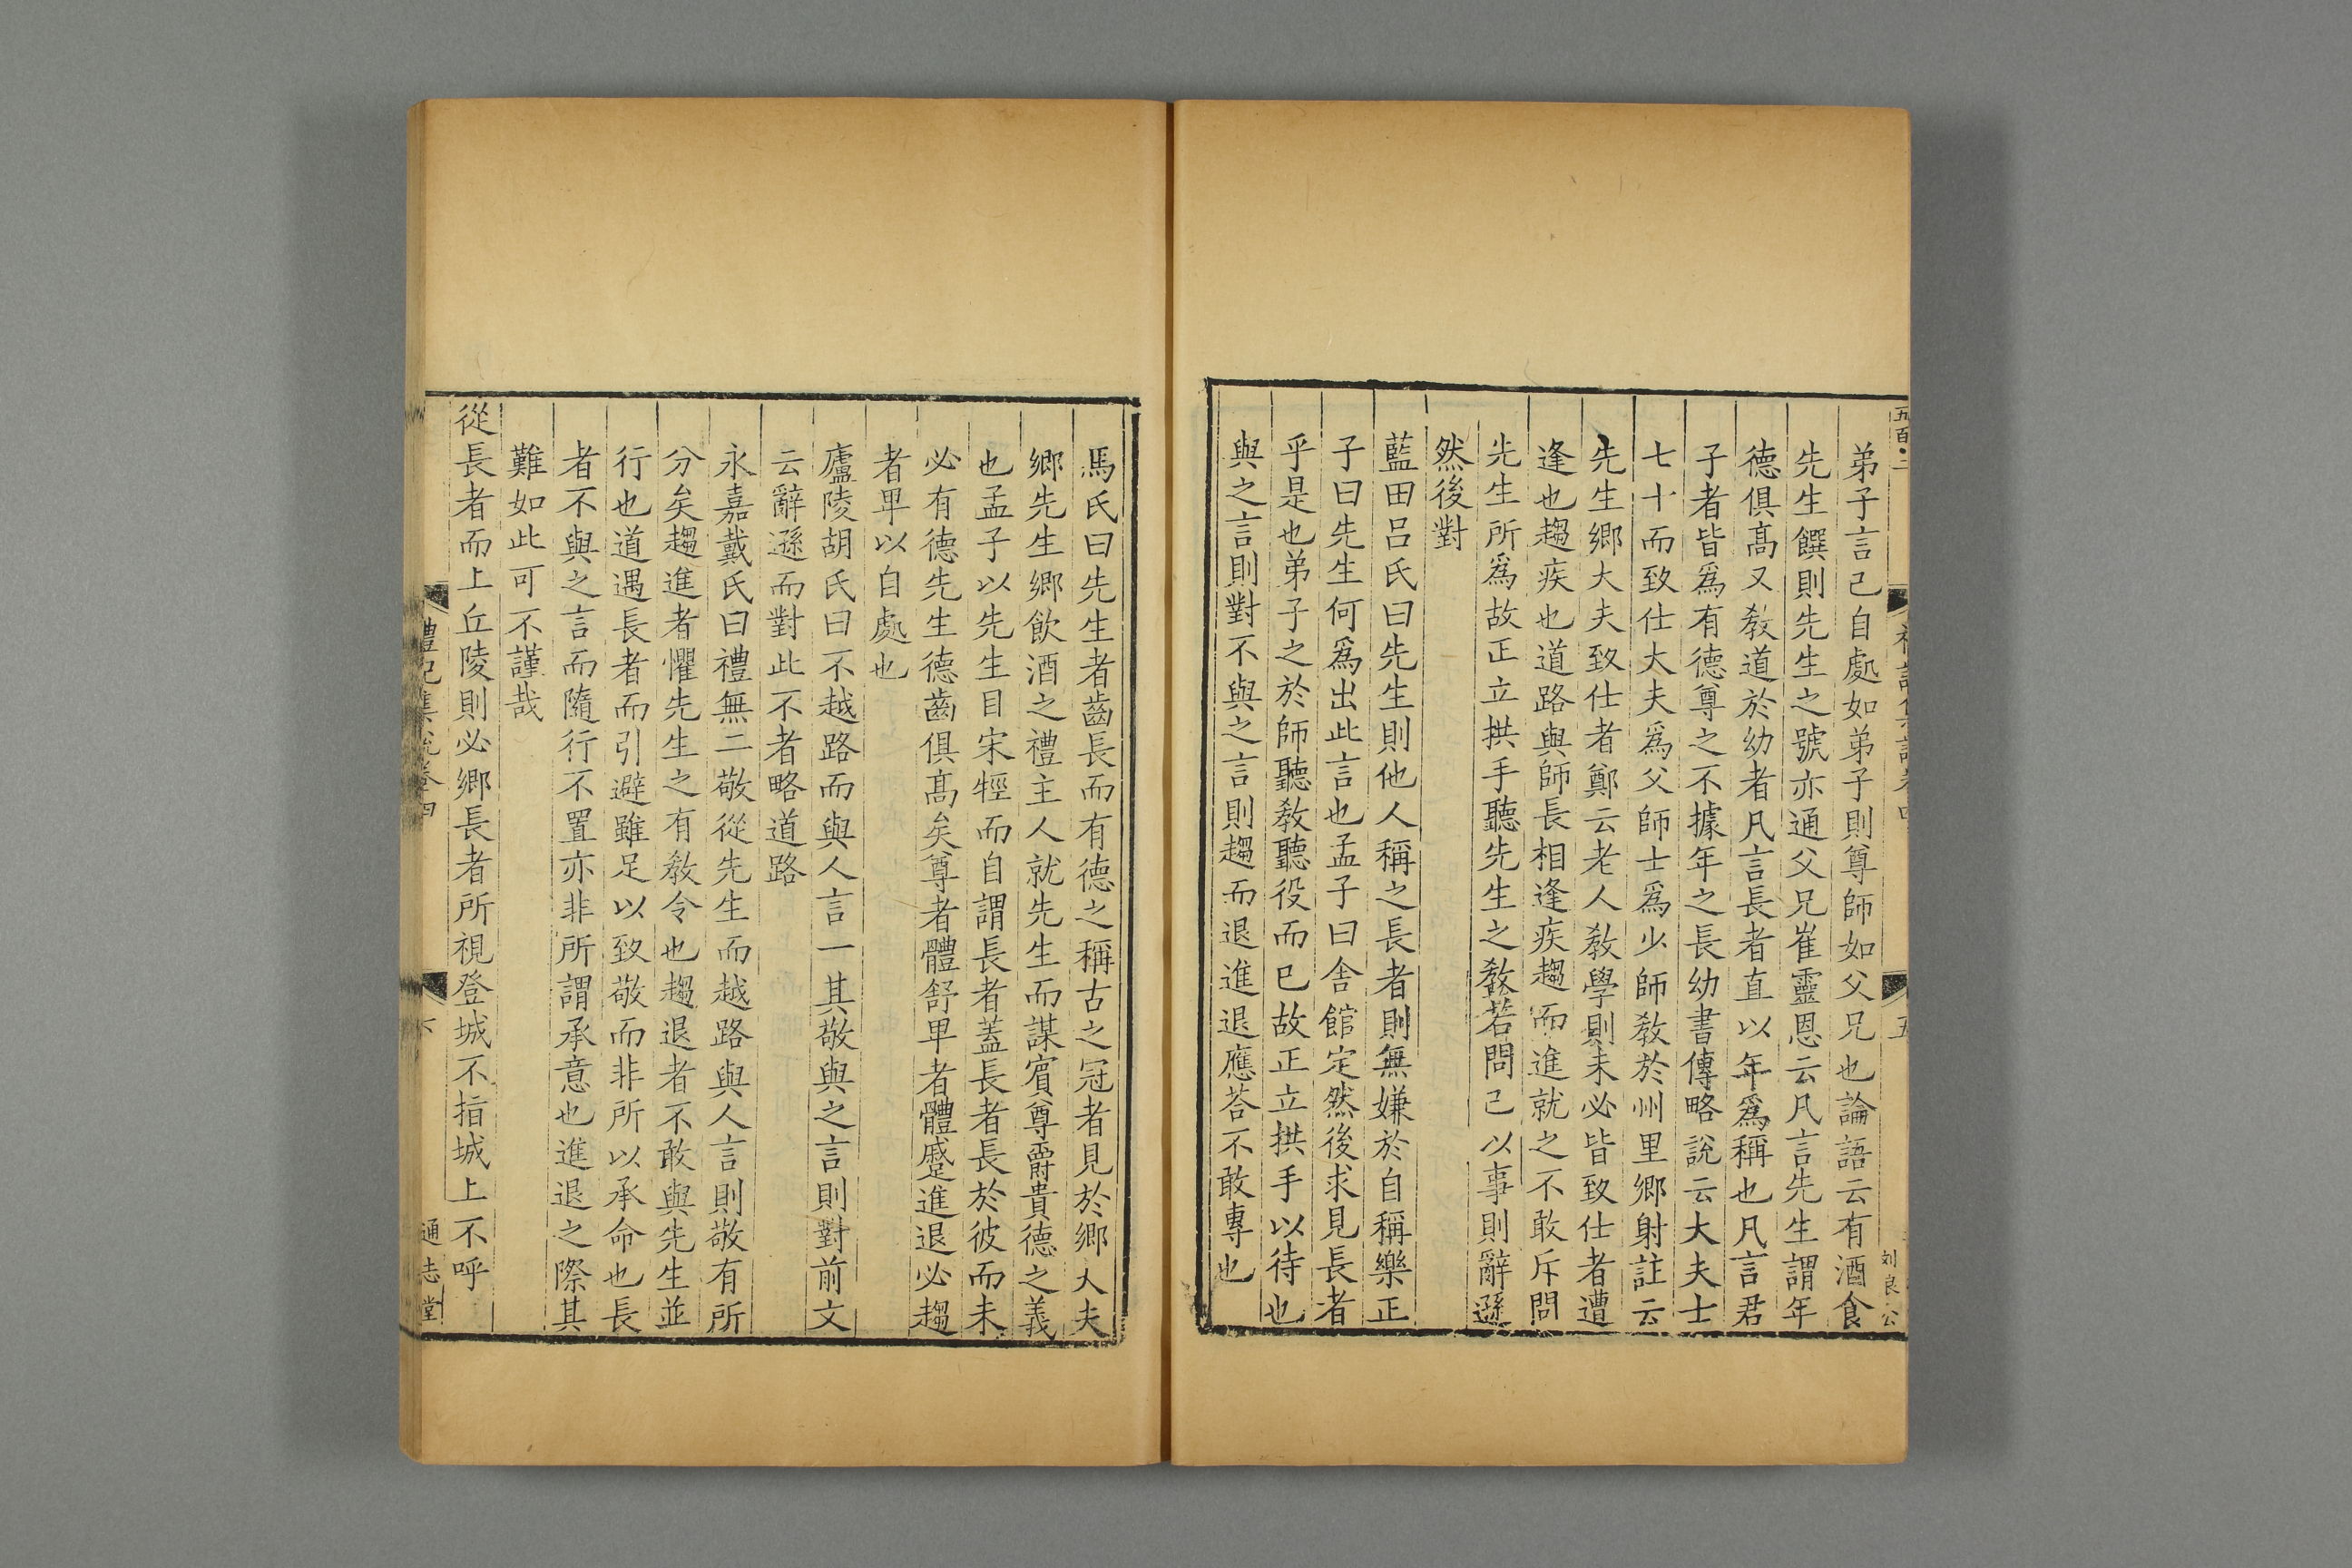 弟子言己自處如弟子則尊師如父兄也論語云有酒食
先生饌則先生之號亦通父兄崔靈恩云凡言先生謂年
德俱髙又教道於幼者凡言長者直以年爲稱也凡言君
子者皆爲有德尊之不據年之長幼書傳略說云大夫士
七十而致仕大夫爲父師士爲少師教於州里鄉射註云
先生鄉大夫致仕者鄭云老人教學則未必皆致仕者遭
逢也趨疾也道路與師長相逢疾趨而進就之不敢斥問
先生所爲故正立拱手聽先生之教若問己以事則辭遜
然後對
藍田吕氏曰先生則他人稱之長者則無嫌於自稱樂正
子曰先生何爲出此言也孟子曰舍館定然後求見長者
乎是也弟子之於師聽教聽役而已故正立拱手以待也
與之言則對不與之言則趨而退進退應荅不敢專也
五百二
五
刘良公
馬氏曰先生者齒長而有德之稱古之冠者見於鄉大夫
鄉先生鄉飲酒之禮主人就先生而謀賔尊爵貴德之義
也孟子以先生目宋牼而自謂長者蓋長者長於彼而未
必有德先生德齒俱髙矣尊者體舒卑者體蹙進退必趨
者卑以自處也
廬陵胡氏曰不越路而與人言一其敬與之言則對前文
云辭遜而對此不者略道路
永嘉戴氏曰禮無二敬從先生而越路與人言則敬有所
分矣趨進者懼先生之有教令也趨退者不敢與先生並
行也道遇長者而引避雖足以致敬而非所以承命也長
者不與之言而隨行不置亦非所謂承意也進退之際其
難如此可不謹哉
從長者而上丘陵則必鄉長者所視登城不指城上不呼
禮記集說卷四
通志堂